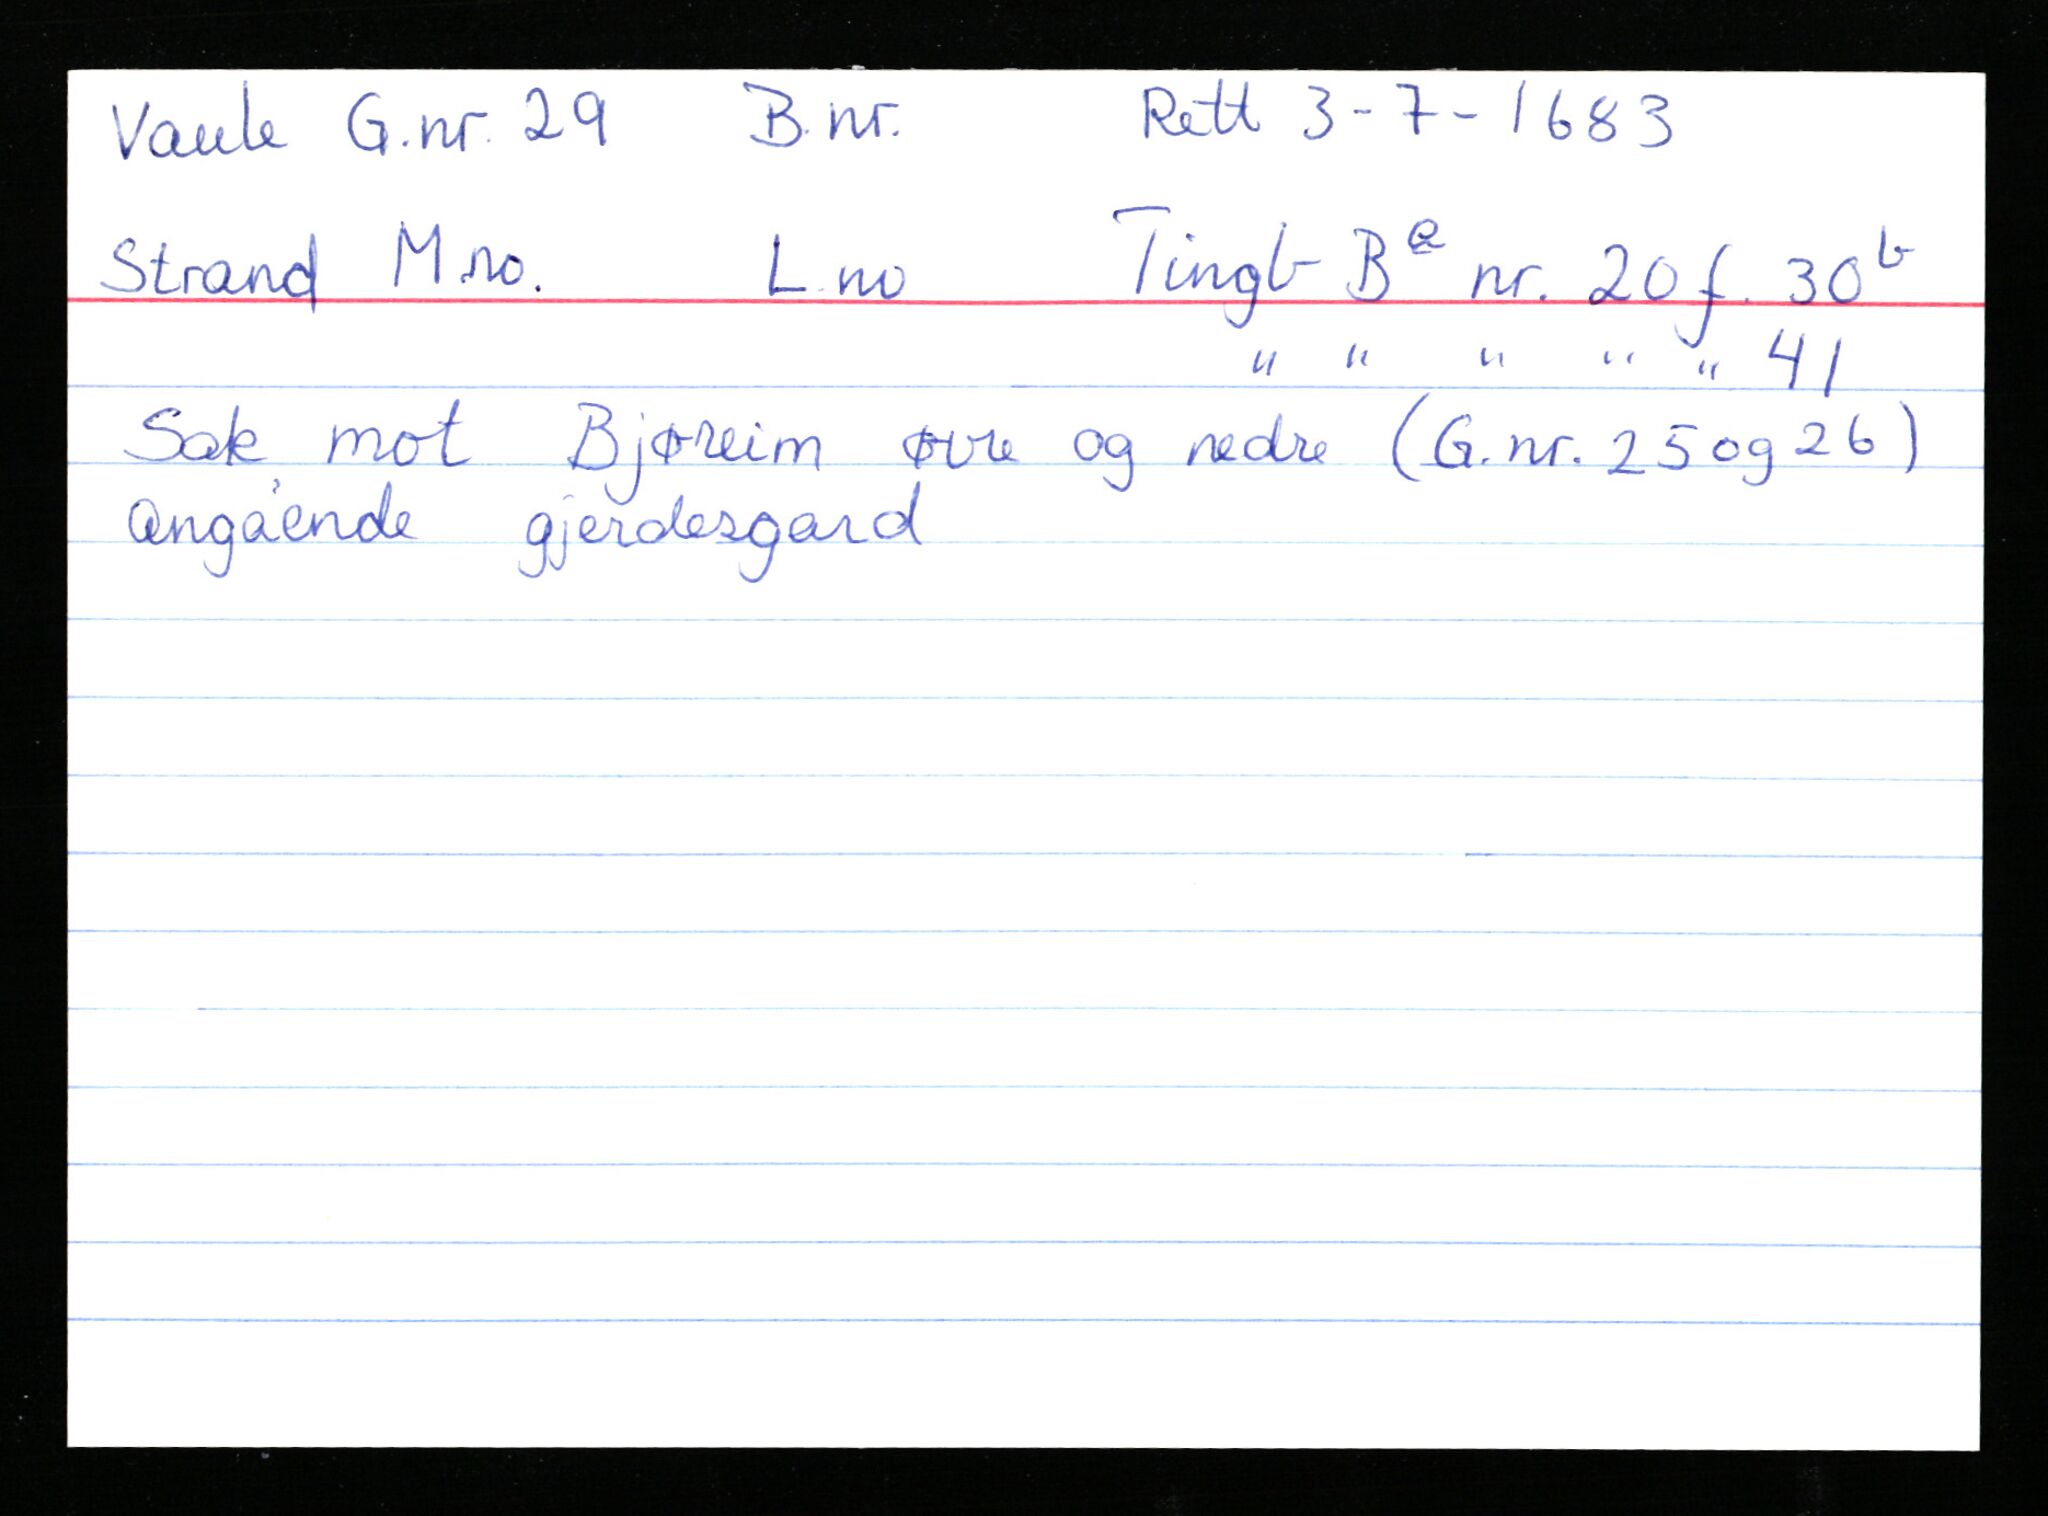 Vaule G.nr. 29 B.nr. Rett 3-7-1683
Strand M.no. L.no Tingb Bᵃ nr. 20 f. 30ᵇ
" " " " " 41
Sak mot Bjøreim øvre og nedre (G.nr. 25 og 26)
angående gjerdesgard